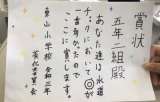 賞状
五年二組殿
あなた達は水道
チェックにおいて◎が
一番多かったので
ここに賞します。
小学校 令和三年
美化委員会